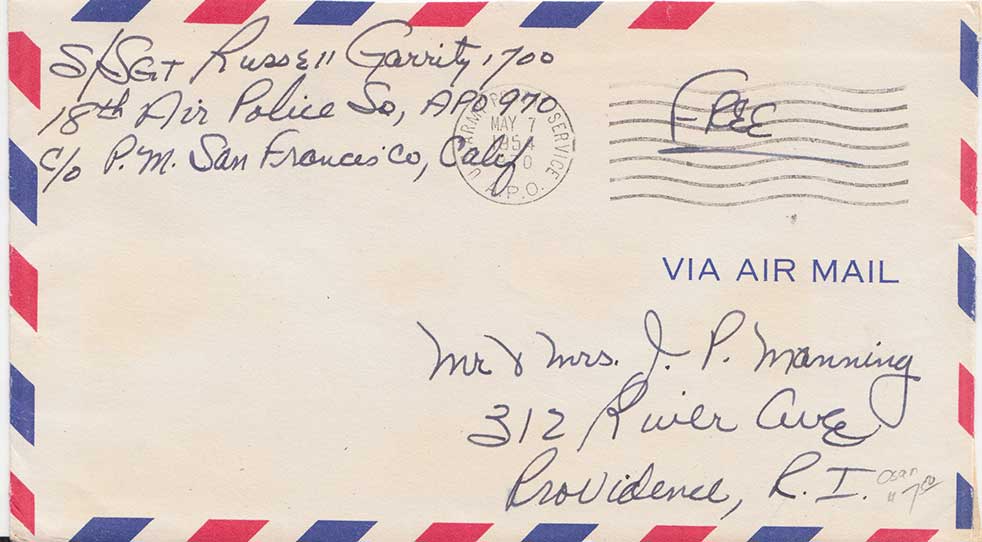 S/Sgt Russell Garrity 1700
18th Air Police Sq, APO 970
c/o P.M. San Francisco, Calif
U ARMY SERVICE
MAY 7
1954
A.P.O.
FREE
VIA AIR MAIL
Mr & Mrs. J. P. Manning
312 River Ave
Providence, R. I.
Osan